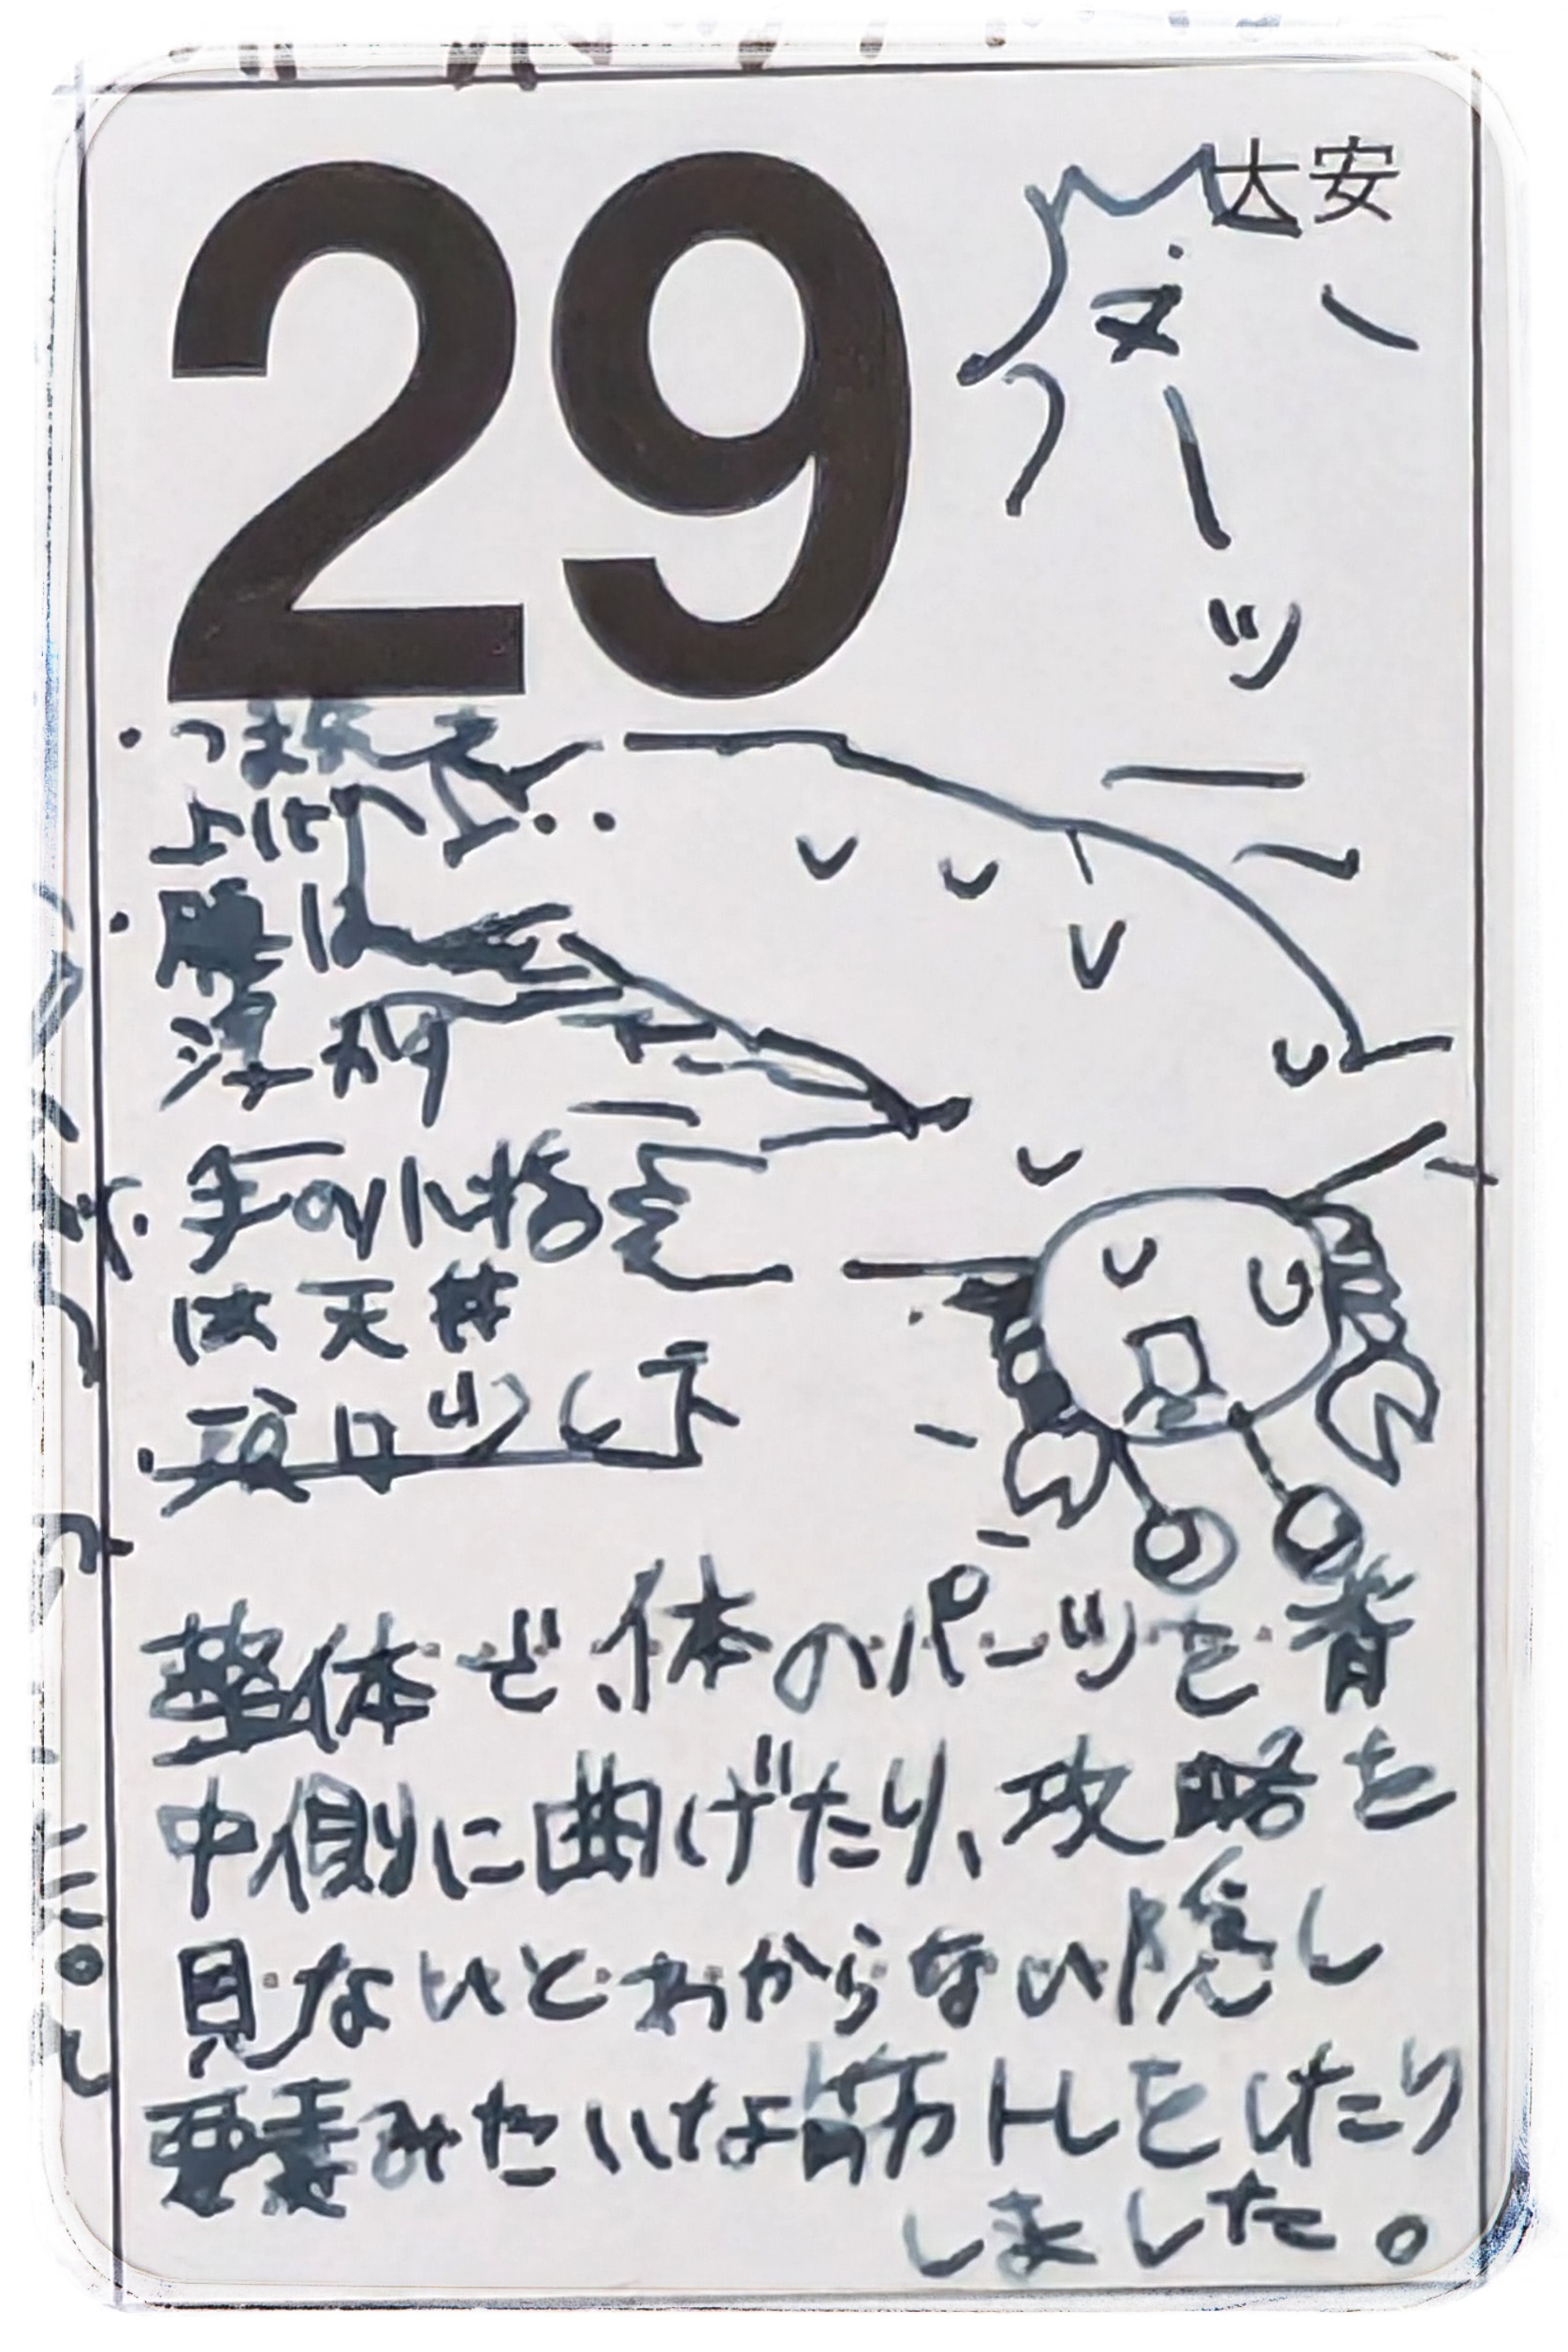 29
大安
ヌーッ
・つま先を
上げて…
・腰は
浮かす
手の小指
は天井
・頭は少し下
整体で、体のパーツを背
中側に曲げたり、攻略を
見ないとわからない隠し
要素みたいな筋トレをしたり
しました。